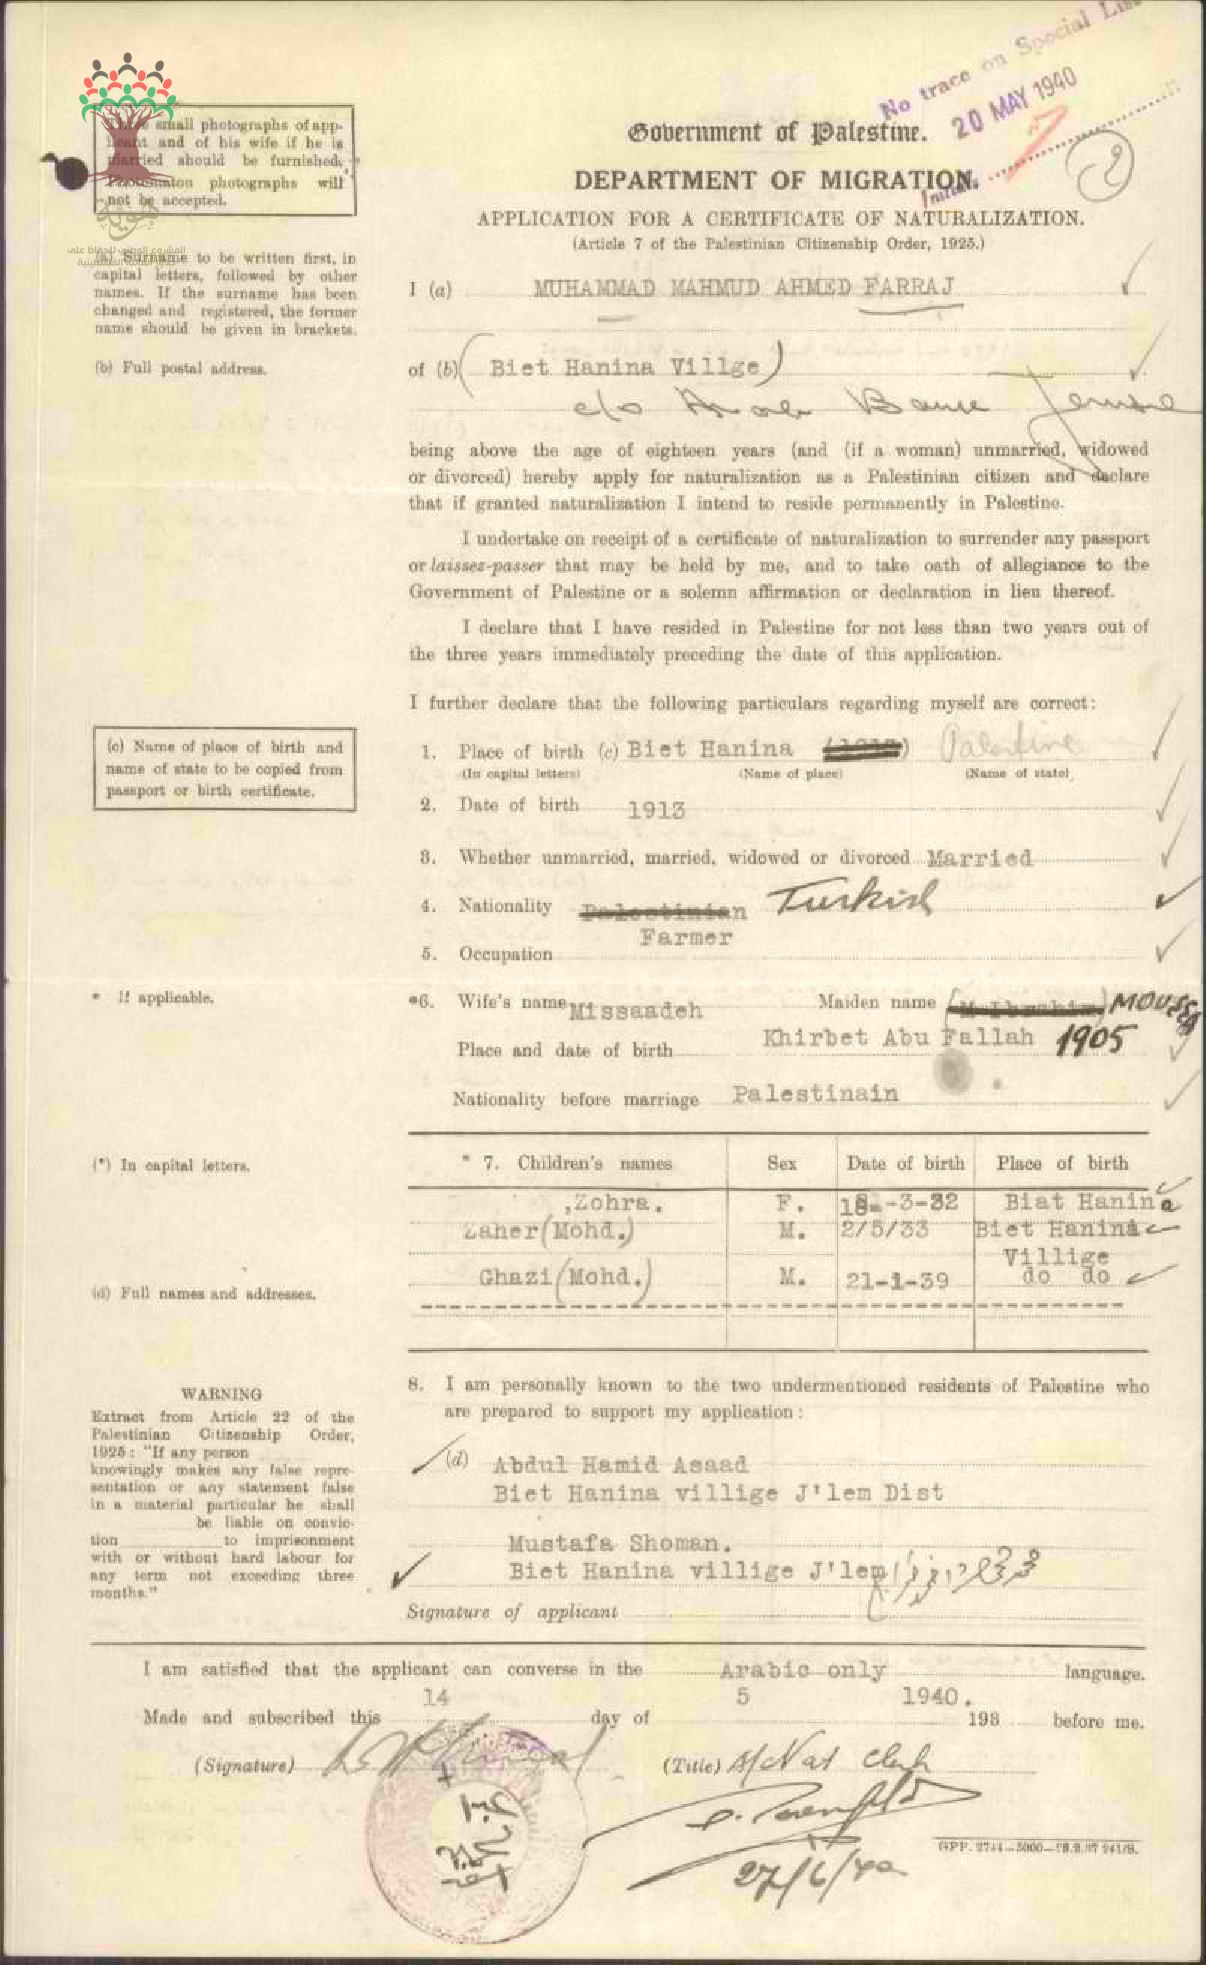 No trace on Special List
20 MAY 1940
Initials
2
Government of Palestine.
DEPARTMENT OF MIGRATION.
APPLICATION FOR A CERTIFICATE OF NATURALIZATION.
(Article 7 of the Palestinian Citizenship Order, 1925.)
Three small photographs of app-
licant and of his wife if he is
married should be furnished.
Photomaton photographs will
not be accepted.
هوية
المشروع الوطني للحفاظ على
(a) Surname to be written first, in
capital letters, followed by other
names. If the surname has been
changed and registered, the former
name should be given in brackets.
I (a) MUHAMMAD MAHMUD AHMED FARRAJ
(b) Full postal address.
of (b) (Biet Hanina Villge)
c/o Arab Bank
being above the age of eighteen years (and (if a woman) unmarried, widowed
or divorced) hereby apply for naturalization as a Palestinian citizen and declare
that if granted naturalization I intend to reside permanently in Palestine.
I undertake on receipt of a certificate of naturalization to surrender any passport
or laissez-passer that may be held by me, and to take oath of allegiance to the
Government of Palestine or a solemn affirmation or declaration in lieu thereof.
I declare that I have resided in Palestine for not less than two years out of
the three years immediately preceding the date of this application.
I further declare that the following particulars regarding myself are correct:
(c) Name of place of birth and
name of state to be copied from
passport or birth certificate.
1. Place of birth (c) Biet Hanina Palestine
(In capital letters) (Name of place) (Name of state)
2. Date of birth 1913
3. Whether unmarried, married, widowed or divorced Married
4. Nationality Palestinian Turkish
5. Occupation Farmer
* If applicable.
*6. Wife's name Missaadeh Maiden name (M Ibrahim) MOUSSA
Place and date of birth Khirbet Abu Fallah 1905
Nationality before marriage Palestinain
(*) In capital letters.
* 7. Children's names Sex Date of birth Place of birth
,Zohra. F. 18-3-32 Biat Hanina
Zaher (Mohd.) M. 2/5/33 Biet Hanina
Villige
Ghazi (Mohd.) M. 21-1-39 do do
(d) Full names and addresses.
8. I am personally known to the two undermentioned residents of Palestine who
are prepared to support my application:
(d) Abdul Hamid Asaad
Biet Hanina villige J'lem Dist
Mustafa Shoman.
Biet Hanina villige J'lem
Signature of applicant
WARNING
Extract from Article 22 of the
Palestinian Citizenship Order,
1925: "If any person
knowingly makes any false repre-
sentation or any statement false
in a material particular he shall
be liable on convic-
tion to imprisonment
with or without hard labour for
any term not exceeding three
months."
I am satisfied that the applicant can converse in the Arabic only language.
Made and subscribed this 14 day of 5 1940. 193 before me.
(Signature) (Title) A/Nat Clerk
27/6/40
GPP. 2744—5000—